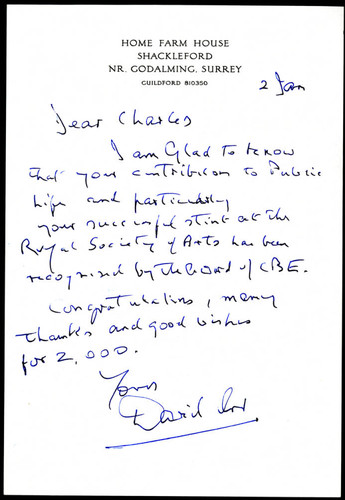 HOME FARM HOUSE
SHACKLEFORD
NR. GODALMING, SURREY
GUILDFORD 810350
2 Jan
Dear Charles
I am Glad to know
that your contribution to Public
Life and particularly
your successful stint at the
Royal Society of Arts has been
recognised by the award of CBE.
Congratulations, many
thanks and good wishes
for 2,000.
Yours
David